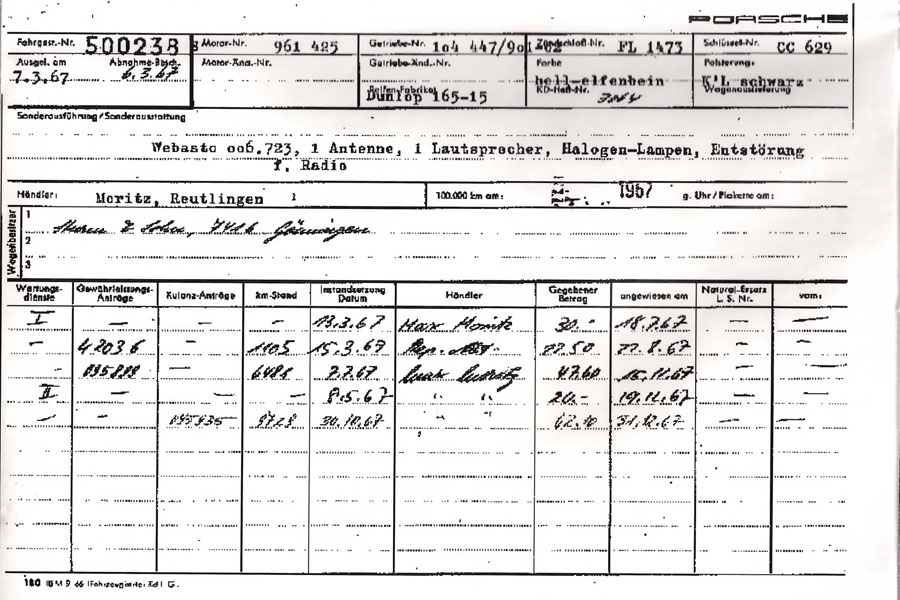 PORSCHE
Fahrgest.-Nr. 500238 S Motor-Nr. 961 425 Getriebe-Nr. 104 447/901 Zündschloß-Nr. FL 1473 Schlüssel-Nr. CC 629
Ausgel. am 7.3.67 Abnahme-Besch. 6.3.67 Motor-Änd.-Nr. Getriebe-Änd.-Nr. Farbe hell-elfenbein Polsterung: K'L schwarz
Reifen-Fabrikat Dunlop 165-15 KD-Heft-Nr. Wagenauslieferung
Sonderausführung/Sonderausstattung
Webasto 006.723, 1 Antenne, 1 Lautsprecher, Halogen-Lampen, Entstörung
f. Radio
Händler: Moritz, Reutlingen 100.000 km am: 1967 g. Uhr/Plakette am:
Wagenbesitzer
1
2
3
Sturm & Sohn, 7416 Gönningen
Wartungs-dienste Gewährleistungs-Anträge Kulanz-Anträge km-Stand Instandsetzung Datum Händler Gegebener Betrag angewiesen am Natural-Ersatz L. S. Nr. vom:
I — — - 13.3.67 Max Moritz 30.- 18.7.67 — —
- 42036 - 1105 15.3.67 22.50 22.8.67 - —
- — 6481 7.7.67 47.60 15.11.67 — —
II - — — 8.5.67 " " 20.- 19.12.67 — —
- - 9728 30.10.67 " " 62.10 31.12.67 — —